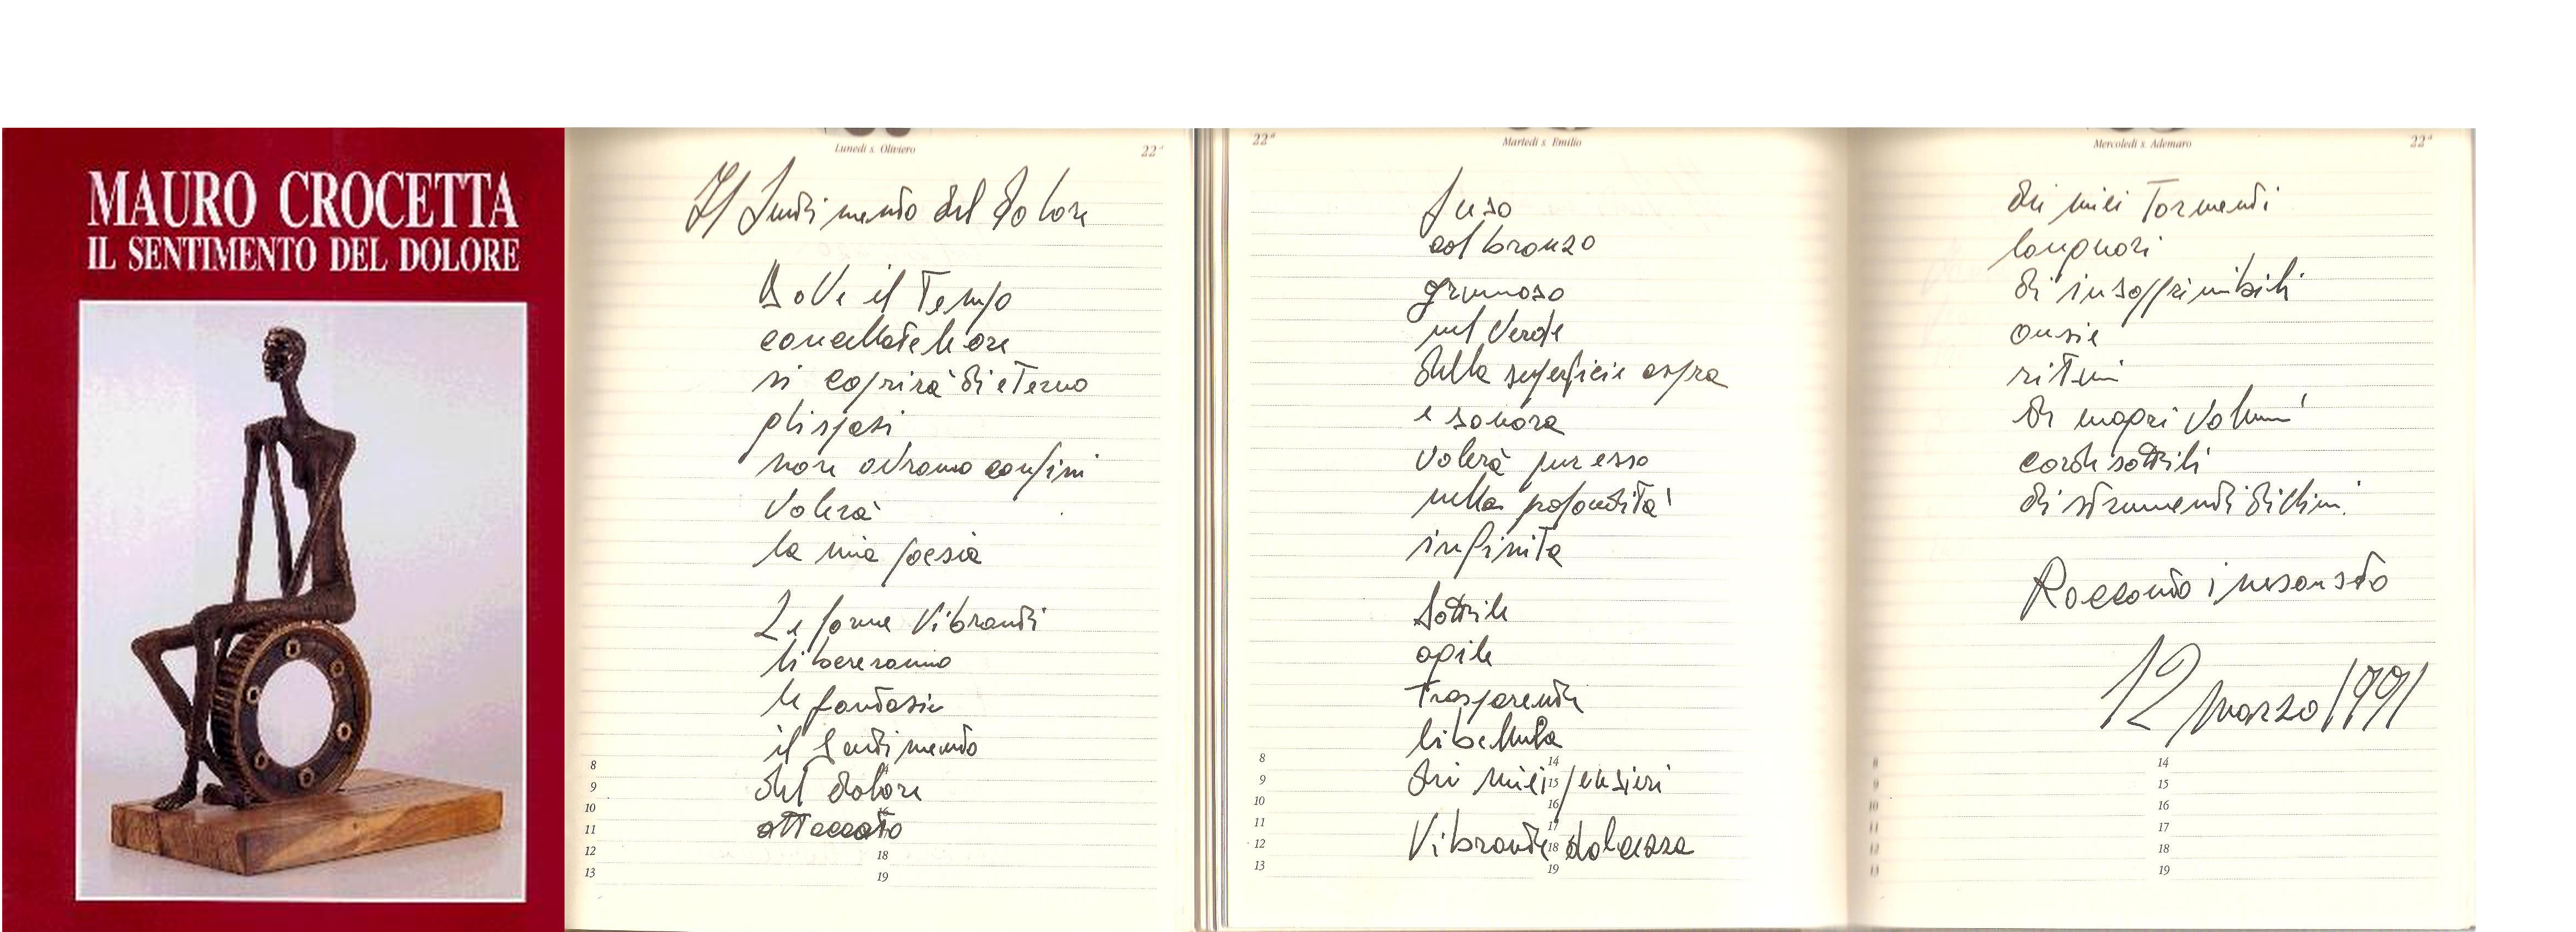 MAURO CROCETTA
IL SENTIMENTO DEL DOLORE
Lunedì s. Oliviero
22ª
Il Sentimento del dolore
Dove il Tempo
cancellate le ore
si coprirà di eterno
gli spasi
non avranno confini
volerà
la mia poesia
Le forme vibranti
libereranno
le fantasie
il Sentimento
del dolore
attaccato
8
9
10
11
12
13
18
19
22ª
Martedì s. Emilio
fuso
col bronzo
grumoso
nel verde
della superficie aspra
e sonora
volerà pur esso
nella profondità
infinita
Sottile
agile
Trasparente
libellula
dei miei pensieri
Vibrante dolcezza
8
9
10
11
12
13
14
15
16
17
18
19
Mercoledì s. Ademaro
22ª
dei miei Tormenti
languori
di insopprimibili
ansie
ritmi
di magri volumi
corde sottili
di strumenti divini.
Racconto inesausto
12 marzo 1991
8
9
10
11
12
13
14
15
16
17
18
19